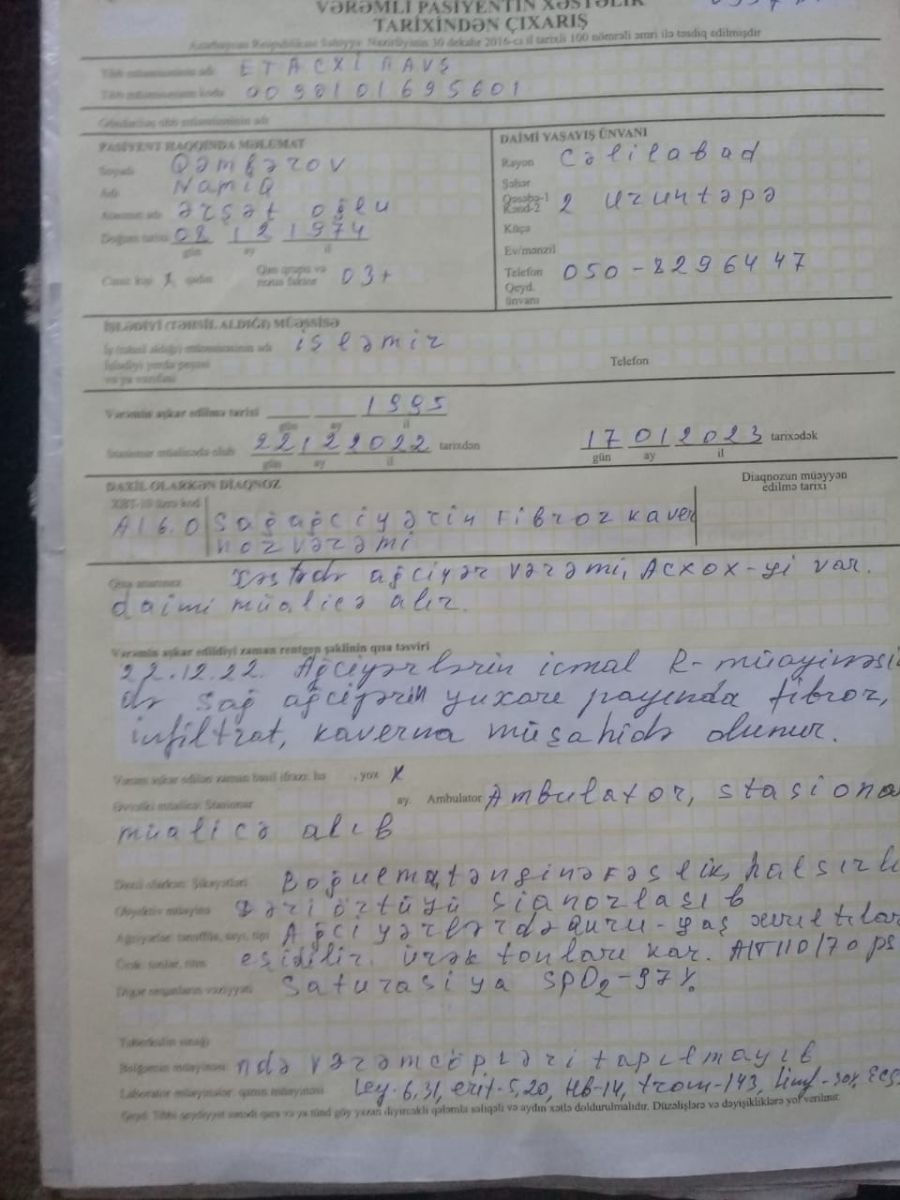 VƏRƏMLİ PASİYENTİN XƏSTƏLİK
TARİXİNDƏN ÇIXARIŞ
Azərbaycan Respublikası Səhiyyə Nazirliyinin 30 dekabr 2016-cı il tarixli 100 nömrəli əmri ilə təsdiq edilmişdir
Tibb müəssisəsinin adı ETACXİ AAVŞ
Tibb müəssisəsinin kodu 0090101695601
Göndərilən tibb müəssisəsinin adı
PASİYENT HAQQINDA MƏLUMAT
Soyadı Qəmbərov
Adı Namiq
Atasının adı Ərşət oğlu
Doğum tarixi 02 12 1974
gün ay il
Cinsi: kişi qadın Qan qrupu və rezus faktor 03+
DAİMİ YAŞAYIŞ ÜNVANI
Rayon Cəlilabad
Şəhər
Qəsəbə-1
Kənd-2 2 Uzuntəpə
Küçə
Ev/mənzil
Telefon 050-8296447
Qeyd. ünvanı
İŞLƏDİYİ (TƏHSİL ALDIĞI) MÜƏSSİSƏ
İş (təhsil aldığı) müəssisəsinin adı işləmir
İşlədiyi yerdə peşəsi və ya vəzifəsi
Telefon
Vərəmin aşkar edilmə tarixi 1995
gün ay il
Stasionar müalicədə olub 22 12 2022 tarixdən 17 01 2023 tarixədək
gün ay il gün ay il
DAXİL OLARKƏN DİAQNOZ Diaqnozun müəyyən edilmə tarixi
XBT-10 üzrə kod
A16.0 Sağ ağciyərin Fibroz kaver
noz vərəmi
Qısa anamnez Xəstədə ağciyər vərəmi, ACXOX-yi var.
daimi müalicə alır.
Vərəmin aşkar edildiyi zaman rentgen şəklinin qısa təsviri
22.12.22. Ağciyərlərin icmal R-müayinəsin
də sağ ağciyərin yuxarı payında fibroz,
infiltrat, kaverna müşahidə olunur.
Vərəm aşkar edilən zaman basil ifrazı: hə , yox x
Əvvəlki müalicə: Stasionar ay. Ambulator Ambulator, stasiona
müalicə alıb
Daxil olarkən: Şikayətləri Boğulma, tənginəfəslik, halsızlı
Obyektiv müayinə Dəri örtüyü sianozlaşıb
Ağciyərlər: tənəffüs, sayı, tipi Ağciyərlərdə quru-yaş xırıltılar
eşidilir. ürək tonları kar. A/T 110/70 ps
Digər orqanların vəziyyəti Saturasiya SpO2-97%
Tuberkulin sınağı
Bəlğəmin müayinəsi ndə vərəm çöpləri tapılmayıb
Laborator müayinələr: qanın müayinəsi Ley-6,31, erit-5,20, Hb-14, trom-143, Limf-30%
Qeyd: Tibbi qeydiyyat sənədi qara və ya tünd göy yazan diyircəkli qələmlə səliqəli və aydın xətlə doldurulmalıdır. Düzəlişlərə və dəyişikliklərə yol verilmir.